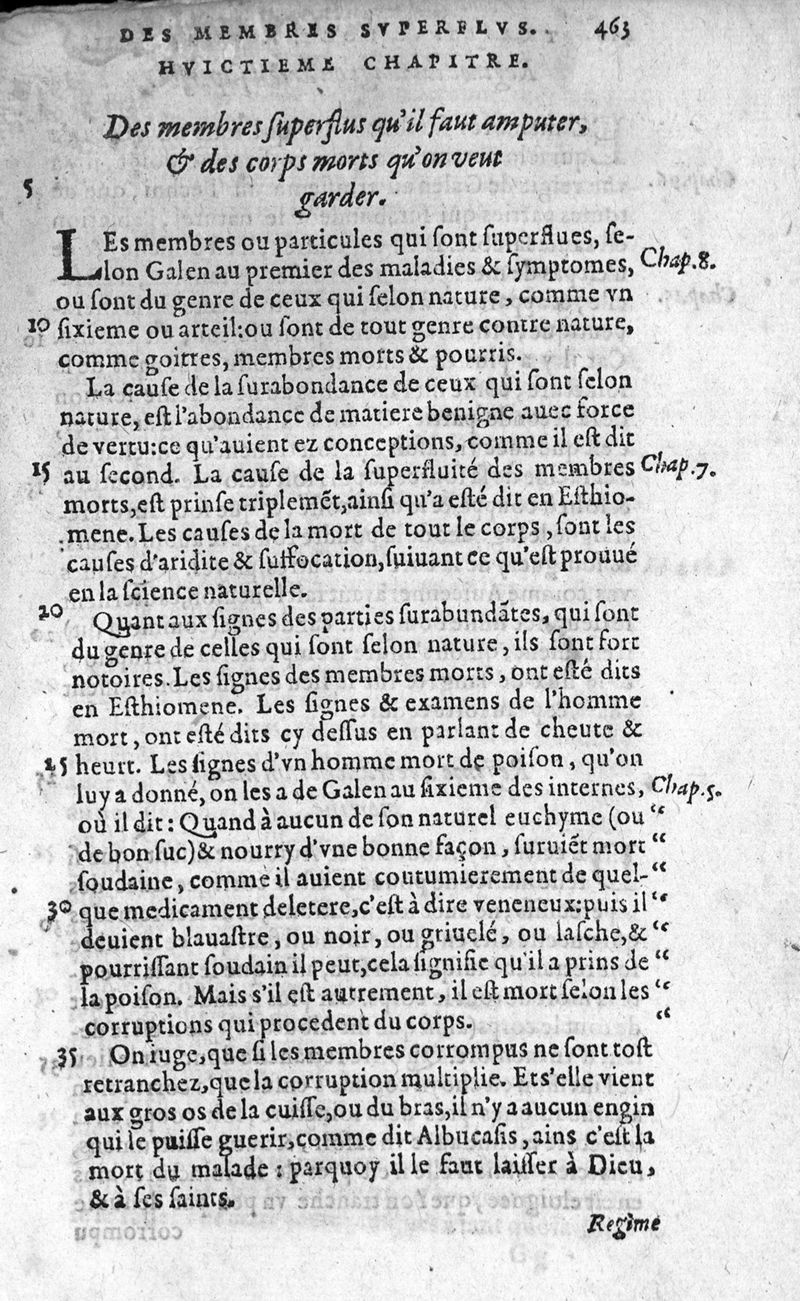 DES MEMBRES SVPERFLVS. 463
HVICTIEME CHAPITRE.
Des membres ſuperflus qu'il faut amputer,
& des corps morts qu'on veut
5 garder.
LEs membres ou particules qui ſont ſuperflues, ſe-
lon Galen au premier des maladies & ſymptomes, Chap.8.
ou ſont du genre de ceux qui ſelon nature, comme vn
10 ſixieme ou arteil:ou ſont de tout genre contre nature,
comme goitres, membres morts & pourris.
La cauſe de la ſurabondance de ceux qui ſont ſelon
nature, eſt l'abondance de matiere benigne auec force
de vertu:ce qu'auient ez conceptions, comme il eſt dit
15 au ſecond. La cauſe de la ſuperfluité des membres Chap.7.
morts,eſt prinſe triplemẽt,ainſi qu'a eſté dit en Eſthio-
mene. Les cauſes de la mort de tout le corps, ſont les
cauſes d'aridite & ſuffocation,ſuiuant ce qu'eſt prouué
en la ſcience naturelle.
20 Quant aux ſignes des parties ſurabundãtes, qui ſont
du genre de celles qui ſont ſelon nature, ils ſont fort
notoires. Les ſignes des membres morts, ont eſté dits
en Eſthiomene. Les ſignes & examens de l'homme
mort, ont eſté dits cy deſſus en parlant de cheute &
25 heurt. Les ſignes d'vn homme mort de poiſon, qu'on
luy a donné, on les a de Galen au ſixieme des internes, Chap.5.
où il dit: Quand à aucun de ſon naturel euchyme (ou “
de bon ſuc)& nourry d'vne bonne façon, ſuruiẽt mort “
ſoudaine, comme il auient coutumierement de quel- “
30 que medicament deletere,c'eſt à dire veneneux:puis il “
deuient blauaſtre, ou noir, ou griuelé, ou laſche,& “
pourriſſant ſoudain il peut,cela ſignifie qu'il a prins de “
la poiſon. Mais s'il eſt autrement, il eſt mort ſelon les “
corruptions qui procedent du corps. “
35 On iuge,que ſi les membres corrompus ne ſont toſt
retranchez,que la corruption multiplie. Et s'elle vient
aux gros os de la cuiſſe,ou du bras,il n'y a aucun engin
qui le puiſſe guerir,comme dit Albucaſis, ains c'eſt la
mort du malade : parquoy il le faut laiſſer à Dieu,
& à ſes ſaints.
Regime